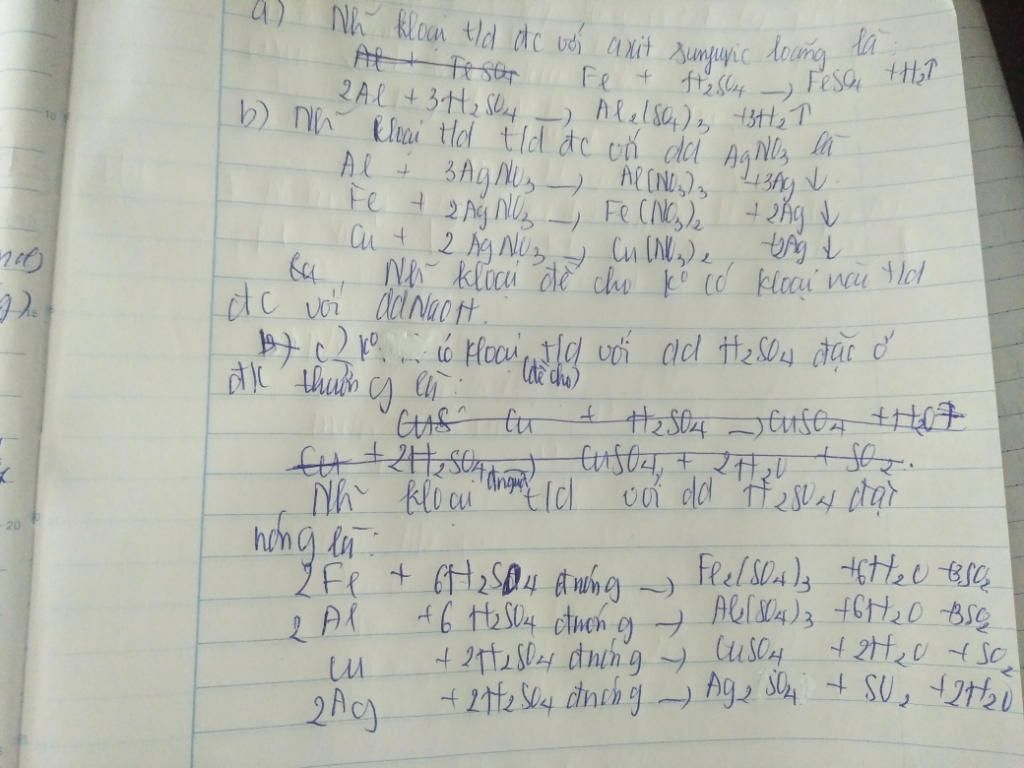 a) Nh~ kloại t/d đc với axit sunguric loãng là:
Al + FeSO4 Fe + H2SO4 → FeSO4 + H2↑
2Al + 3H2SO4 → Al2(SO4)3 + 3H2↑
b) Nh~ kloại t/d t/d đc với dd AgNO3 là
Al + 3AgNO3 → Al(NO3)3 + 3Ag↓
Fe + 2AgNO3 → Fe(NO3)2 + 2Ag↓
Cu + 2AgNO3 → Cu(NO3)2 + 2Ag↓
Nh~ kloại đề cho k° có kloại nào t/d
đc với ddNaOH.
c) k° có kloại t/d với dd H2SO4 đặc ở
(đề cho)
đk thường là:
CuS Cu + H2SO4 → CuSO4 + H2O
Cu + 2H2SO4 → CuSO4 + 2H2O + SO2.
đnguội
Nh~ kloại t/d với dd H2SO4 đặc
nóng là:
2Fe + 6H2SO4 đnóng → Fe2(SO4)3 + 6H2O + 3SO2
2Al + 6H2SO4 đnóng → Al(SO4)3 + 6H2O + 3SO2
Cu + 2H2SO4 đnóng → CuSO4 + 2H2O + SO2
2Ag + 2H2SO4 đnóng → Ag2SO4 + SO2 + 2H2O